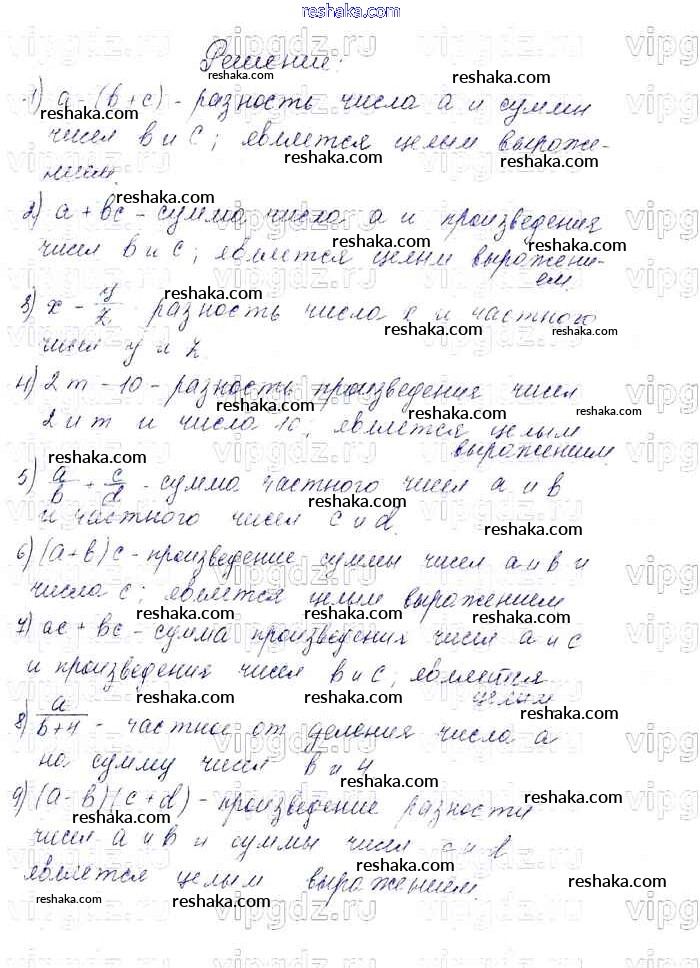 reshaka.com
Решение:
1) a - (b + c) - разность числа a и суммы
чисел b и c; является целым выраже-
нием.
2) a + bc - сумма числа a и произведения
чисел b и c; является целым выражени-
ем.
3) x - y/z разность числа x и частного
чисел y и z.
4) 2m - 10 - разность произведения чисел
2 и m и числа 10; является целым
выражением.
5) a/b + c/d - сумма частного чисел a и b
и частного чисел c и d.
6) (a + b) c - произведение суммы чисел a и b и
числа c; является целым выражением
7) ac + bc - сумма произведения чисел a и c
и произведения чисел b и c; является
целым
8) a/b+4 - частное от деления числа a
на сумму чисел b и 4
9) (a - b) (c + d) - произведение разности
чисел a и b и суммы чисел c и d
является целым выражением.
reshaka.com
vipgdz.ru